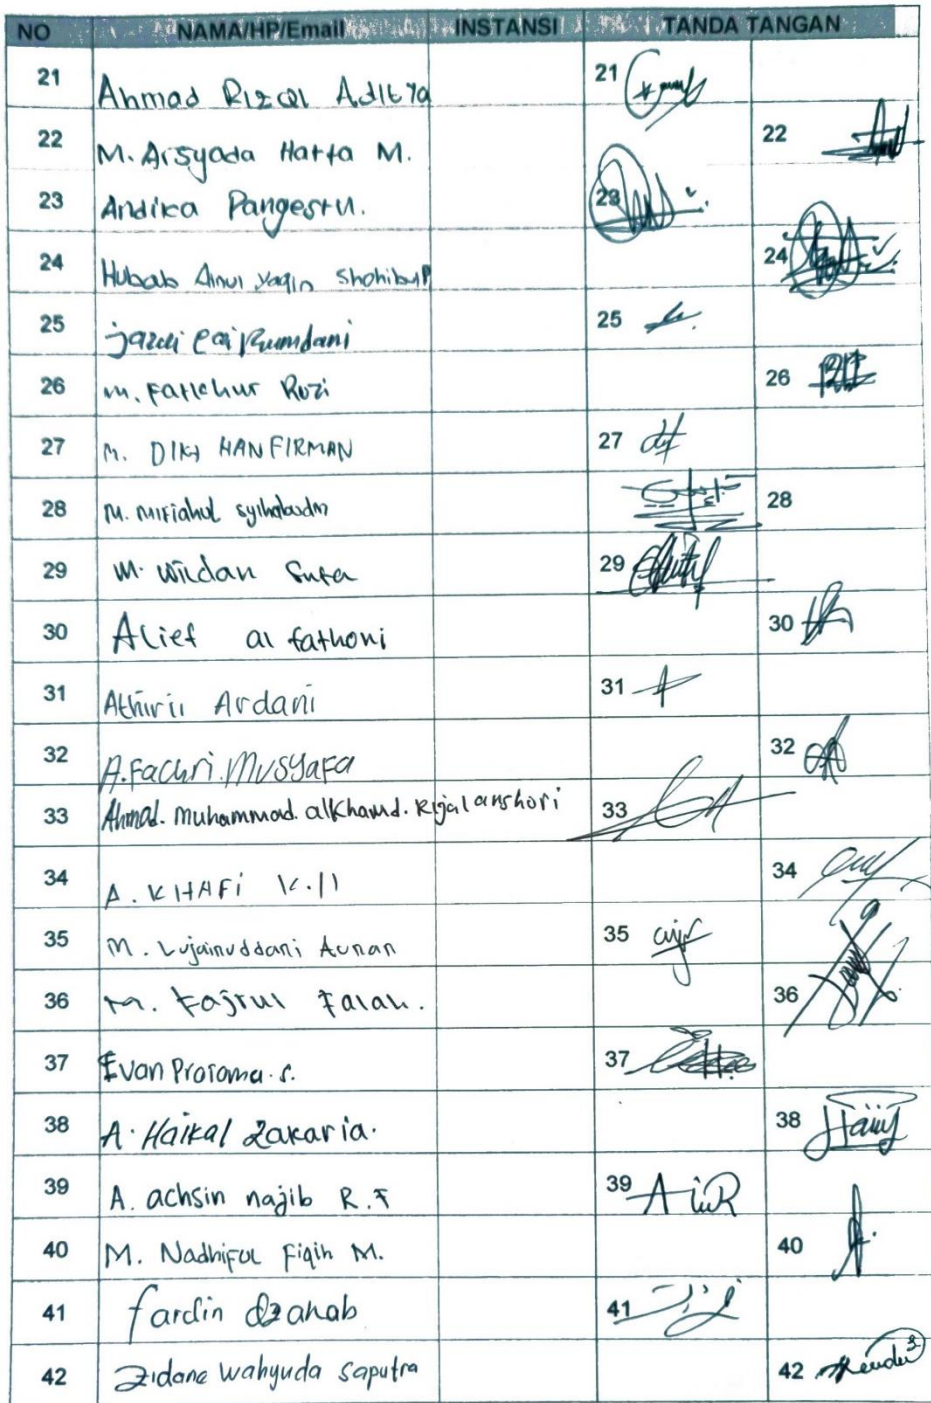 NO NAMA/HP/Email INSTANSI TANDA TANGAN
21 Ahmad Rizqi Aditya 21
22 M. Arsyada Hatta M. 22
23 Andika Pangestu. 23
24 Hubab Ainul yaqin Shohibul 24
25 jazuli 25
26 m. Fatichur Rozi 26
27 M. DIKI HANFIRMAN 27
28 M. Miftahul syihabudin 28
29 M. Wildan 29
30 Alief al fathoni 30
31 Ardani 31
32 A. Fachri. Musyafa 32
33 Ahmad. Muhammad. alkhamd. Rijal anshori 33
34 A. KHAFi K.H 34
35 M. Lujainuddani Adnan 35
36 M. Fajrul Falah. 36
37 Evan Pratama. S. 37
38 A. Haikal Zakaria. 38
39 A. achsin najib R.F 39
40 M. Nadhiful Fiqih M. 40
41 fardin dzanab 41
42 Zidane wahyuda saputra 42